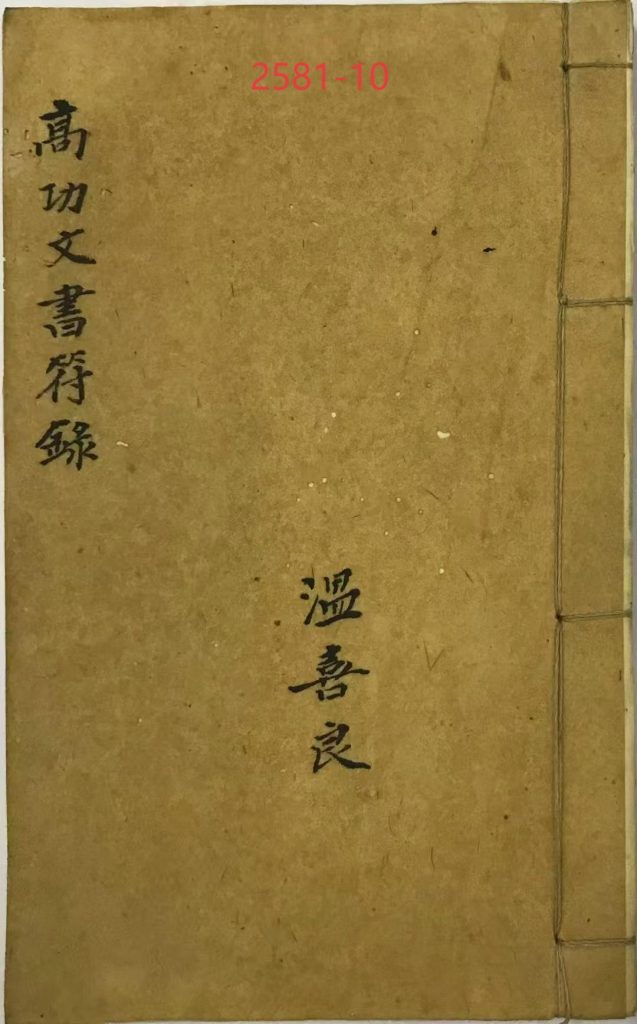 2581-10
高功文書符錄
溫喜良